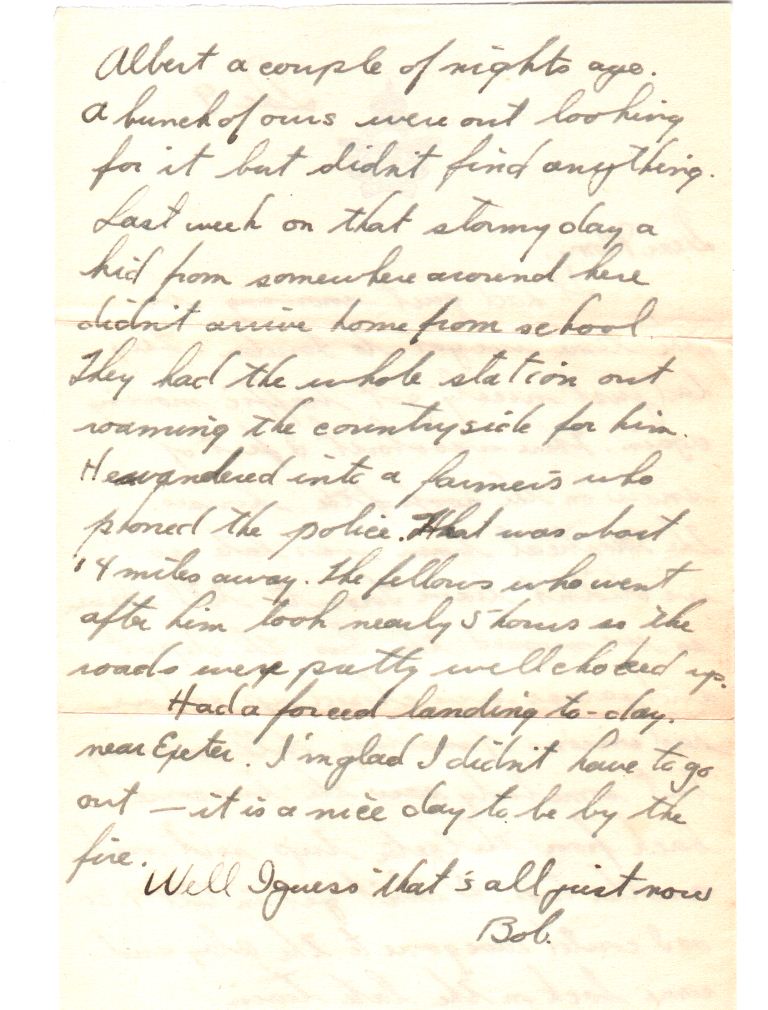 Albert a couple of nights ago.
A bunch of ours were out looking
for it but didn't find anything.
Last week on that stormy day a
kid from somewhere around here
didn't arrive home from school
They had the whole station out
roaming the countryside for him.
He wandered into a farmers who
phoned the police. That was about
14 miles away. The fellows who went
after him took nearly 5 hours as the
roads were pretty well choked up.
Had a forced landing to-day.
near Exeter. I'm glad I didn't have to go
out — it is a nice day to be by the
fire.
Well I guess that's all just now
Bob.